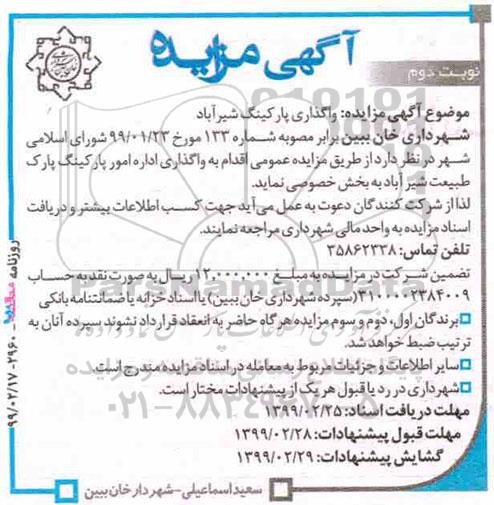 آگهی مزایده
نوبت دوم
موضوع آگهی مزایده: واگذاری پارکینگ شیرآباد
شهرداری خان ببین برابر مصوبه شماره ۱۳۳ مورخ ۹۹/۰۱/۲۳ شورای اسلامی
شهر در نظر دارد از طریق مزایده عمومی اقدام به واگذاری اداره امور پارکینگ پارک
طبیعت شیر آباد به بخش خصوصی نماید.
لذا از شرکت کنندگان دعوت به عمل می‌آید جهت کسب اطلاعات بیشتر و دریافت
اسناد مزایده به واحد مالی شهرداری مراجعه نمایند.
تلفن تماس: ۳۵۸۶۲۳۳۸
تضمین شرکت در مزایده به مبلغ ۱۲,۰۰۰,۰۰۰ ریال به صورت نقد به حساب
۳۱۰۰۰۰۲۳۸۴۰۰۹ (سپرده شهرداری خان ببین) یا اسناد خزانه یا ضمانتنامه بانکی
برندگان اول، دوم و سوم مزایده هرگاه حاضر به انعقاد قرارداد نشوند سپرده آنان به
ترتیب ضبط خواهد شد.
سایر اطلاعات و جزئیات مربوط به معامله در اسناد مزایده مندرج است.
شهرداری در رد یا قبول هر یک از پیشنهادات مختار است.
مهلت دریافت اسناد: ۱۳۹۹/۰۲/۲۵
مهلت قبول پیشنهادات: ۱۳۹۹/۰۲/۲۸
گشایش پیشنهادات: ۱۳۹۹/۰۲/۲۹
سعید اسماعیلی-شهردار خان ببین
روزنامه
۹۹/۰۲/۱۷-۲۹۶۰
ParsNamadData